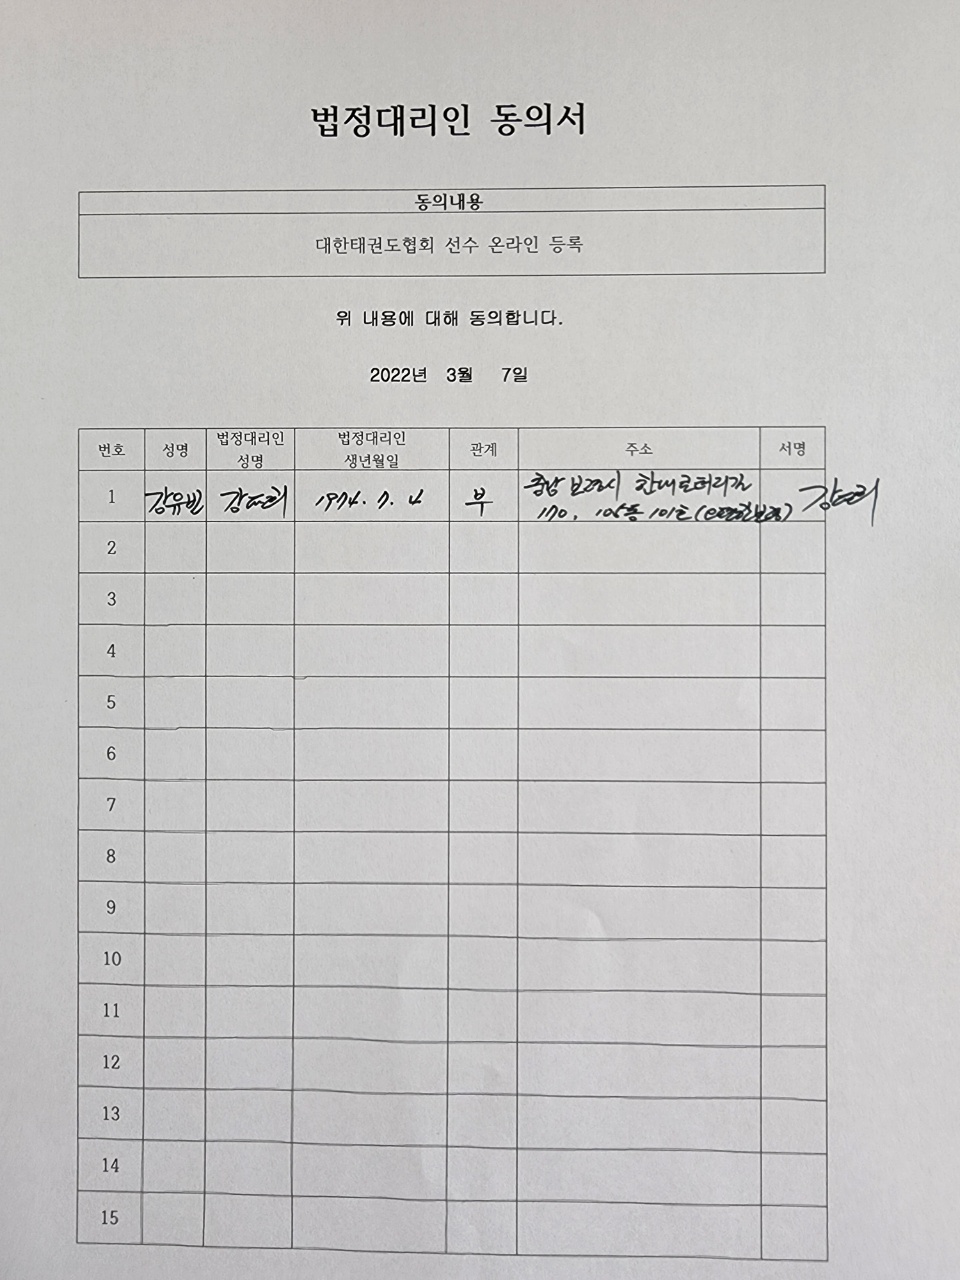 법정대리인 동의서
동의내용
대한태권도협회 선수 온라인 등록
위 내용에 대해 동의합니다.
2022년 3월 7일
번호 성명 법정대리인 성명 법정대리인 생년월일 관계 주소 서명
1 강유빈 1974. 7. 4 부 충남 보령시
170, 105동 101호
2
3
4
5
6
7
8
9
10
11
12
13
14
15